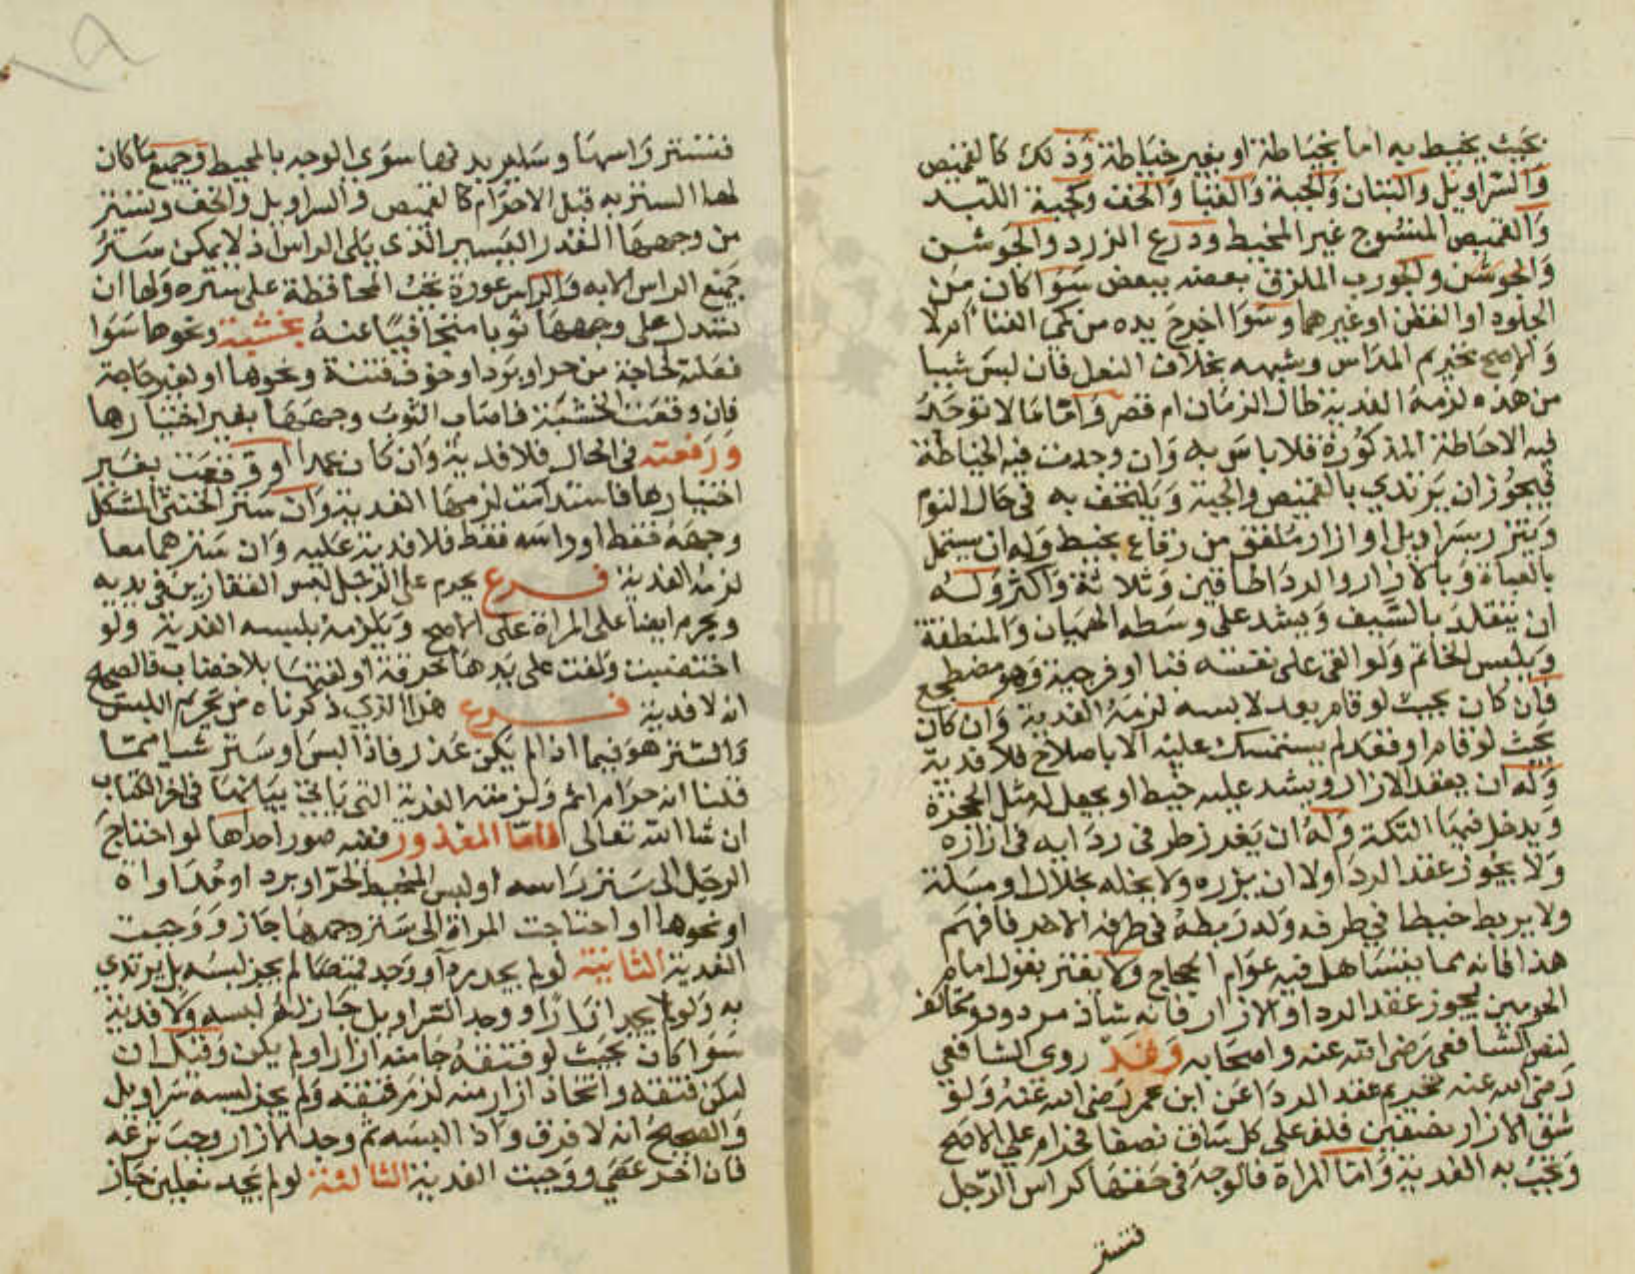 بحيث يحيط به اما بخياطة او بغير خياطة وذلك كالقميص
والسراويل والتبان والجبة والقبا والخف وكجبة اللبد
والقميص المنسوج غير المخيط ودرع الزرد والجوشن
والجوشن والجورب الملزق بعضه ببعض سوا كان من
الجلود او القطن او غيرهما وسوا اخرج يده من كمى القبا ام لا
والاصح تحريم المداس وشبهه بخلاف النعل فان لبس شيا
من هذه لزمه الفدية طال الزمان ام قصر واما ما لا توجد
فيه الاحاطة المذكورة فلا باس به وان وجدت فيه الخياطة
فيجوز ان يرتدي بالقميص والجبة ويلتحف به في حال النوم
ويتزر بسراويل او ازار ملفق من رقاع بخيط وله ان يشتمل
بالعباة وبالازار والردا طاقين وثلاثة واكثر وله
ان يتقلد بالسيف ويشد على وسطه الهميان والمنطقة
ويلبس الخاتم ولو القى على نفسه قبا او فرجية وهو مضطجع
فان كان بحيث لو قام يعد لابسه لزمه الفدية وان كان
بحيث لو قام او قعد لم يستمسك عليه الا باصلاح فلا فدية
وله ان يعقد الازار ويشد عليه خيط او يجعل له مثل الحجزة
ويدخل فيها التكة وله ان يغرز طرفي ردايه في ازاره
ولا يجوز عقد الردا ولا ان يزره ولا يخله بخلال او مسلة
ولا يربط خيطا في طرفه ولا ربطه في طرفه الاخر فافهم
هذا فانه مما يتساهل فيه عوام الحجاج ولا يغتر بقول امام
الحرمين يجوز عقد الردا والازار فانه شاذ مردود مخالف
لنص الشافعى رضى الله عنه واصحابه وقد روى الشافعي
رضى الله عنه تحريم عقد الردا عن ابن عمر رضى الله عنه ولو
شق الازار نصفين فلف على كل ساق نصفا فحرام علي الاصح
وتجب به الفدية واما المراة فالوجه في حقها كراس الرجل
فتستر
فتستر راسها وساير بدنها سوى الوجه بالمخيط وجميع ما كان
لها الستر به قبل الاحرام كالقميص والسراويل والخف وتستر
من وجهها القدر اليسير الذى يلى الراس اذ لا يمكن ستر
جميع الراس الا به والراس عورة تجب المحافظة على ستره ولها ان
تسدل على وجهها ثوبا متجافيا عنه بخشبة ونحوها سوا
فعلته لحاجة من حر او برد او خوف فتنة ونحوها او لغير حاجة
فان وقعت الخشبة فاصاب الثوب وجهها بغير اختيارها
ورفعته في الحال فلا فدية وان كان عمدا او وقعت بغير
اختيارها فاستدامت لزمها الفدية وان ستر الخنثى المشكل
وجهه فقط او راسه فقط فلا فدية عليه وان سترهما معا
لزمه الفدية فرع يحرم على الرجل لبس القفازين في يديه
ويحرم ايضا على المراة على الاصح ويلزمه بلبسه الفدية ولو
اختضبت ولفت على يدها خرقة او لفتها بلا خضاب فالصحيح
انه لا فدية فرع هذا الذي ذكرناه من تحريم اللبس
والستر هو فيما اذا لم يكن عذر فاذا لبس او ستر شيا مما
قلنا انه حرام اثم ولزمته الفدية التي ياتي بيانها في اخر الكتاب
ان شا الله تعالى فاما المعذور ففيه صور احداها لو احتاج
الرجل الى ستر راسه او لبس المخيط لحر او برد او مداواة
او نحوها او احتاجت المراة الى ستر وجهها جاز ووجبت
الفدية الثانية لو لم يجد ردا ووجد قميصا لم يجز لبسه بل يرتدي
به ولو لم يجد ازارا ووجد السراويل جاز له لبسه ولا فدية
سوا كان بحيث لو فتقه جا منه ازار او لم يكن وقيل ان
امكن فتقه واتخاذ ازار منه لزمه فتقه ولم يجز لبسه سراويل
والصحيح انه لا فرق واذا البسه ثم وجد الازار وجب نزعه
فان اخر عصي ووجبت الفدية الثالثة لو لم يجد نعلين جاز